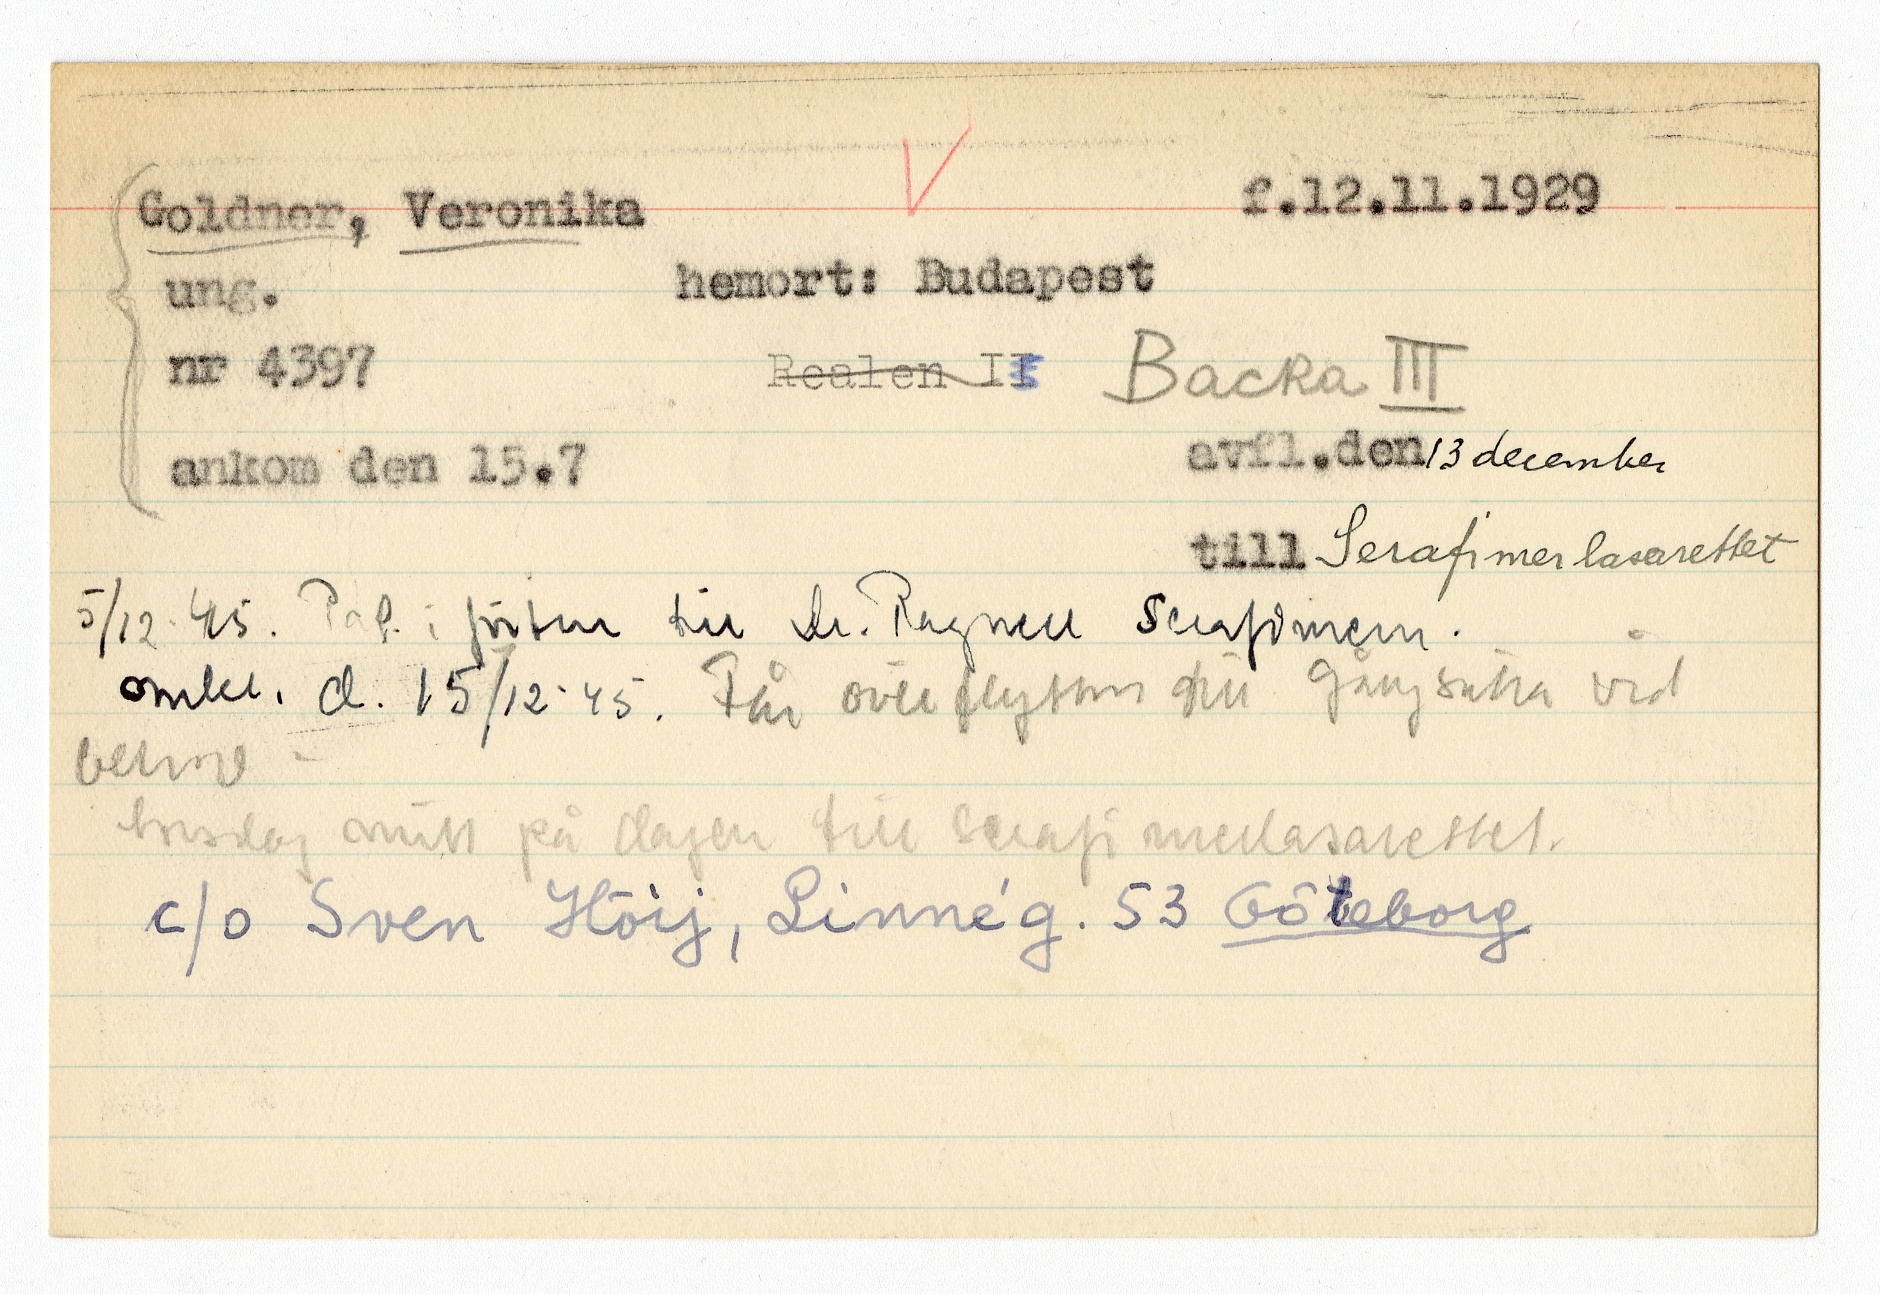 Goldner, Veronika f.12.11.1929
ung. hemort: Budapest
nr 4397 Realen II Backa III
ankom den 15.7 avfl.den 13 december
till Serafimerlasarettet
5/12.45. Pat. i till Dr. Ragnell Serafimern.
d. 15/12.45. Får överflyttas till Gångsätra vid
behov -
torsdag mitt på dagen till Serafimerlasarettet.
c/o Sven Höij, Linnég. 53 Göteborg